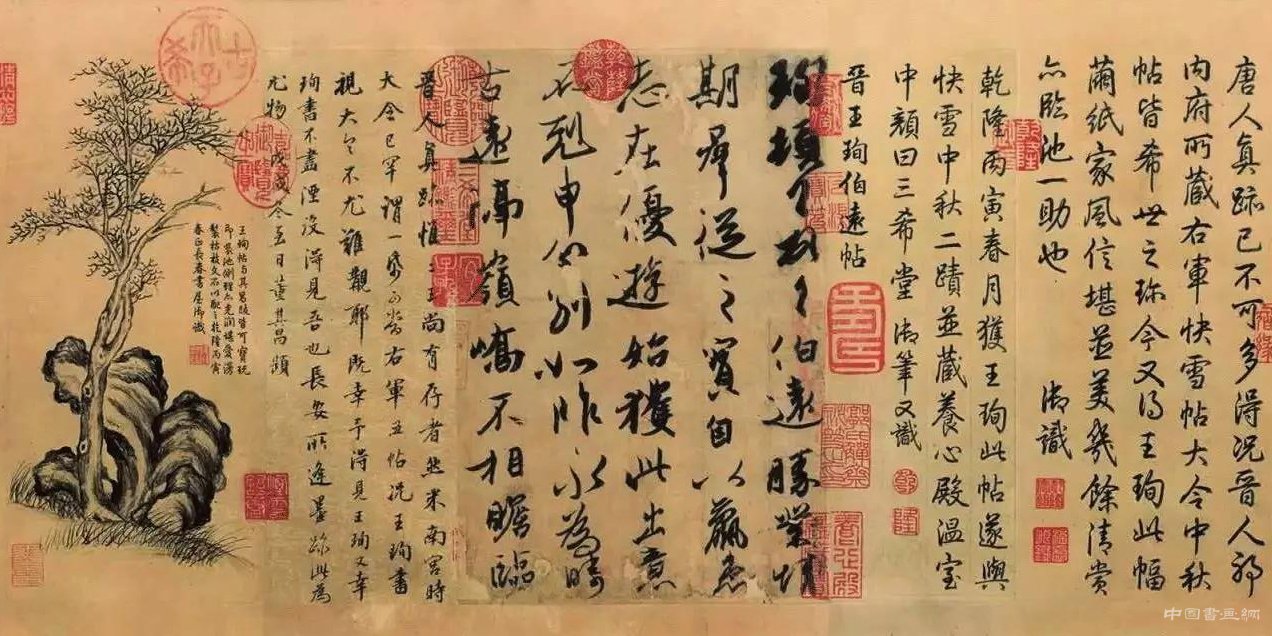 唐人真跡已不可多得況晉人耶
內府所藏右軍快雪帖大令中秋
帖皆希世之珍今又得王珣此幅
繭紙家風信堪並美幾餘清賞
亦臨池一助也 御識
乾隆丙寅春月獲王珣此帖遂與
快雪中秋二蹟並藏養心殿溫室
中顏曰三希堂御筆又識
晉王珣伯遠帖
珣頓首頓首伯遠勝業情
期群從之寶自以羸患
志在優遊始獲此出意
不剋申分別如昨永為疇
古遠隔嶺嶠不相瞻臨
晉人真跡惟二王尚有存者然米南宮時
大令已罕謂一紙可當右軍五帖況王珣書
視大令不尤難覯耶既幸予得見王珣又幸
珣書不盡湮沒得見吾也長安所逢墨跡此為
尤物戊戌冬至日董其昌題
王珣帖與其昌跋皆可寶玩
即裝池側理亦光潤堪愛漫
製枯枝文石以配之乾隆丙寅
春正長春書屋御識
古希天子
乾隆鑑賞
中国書画網